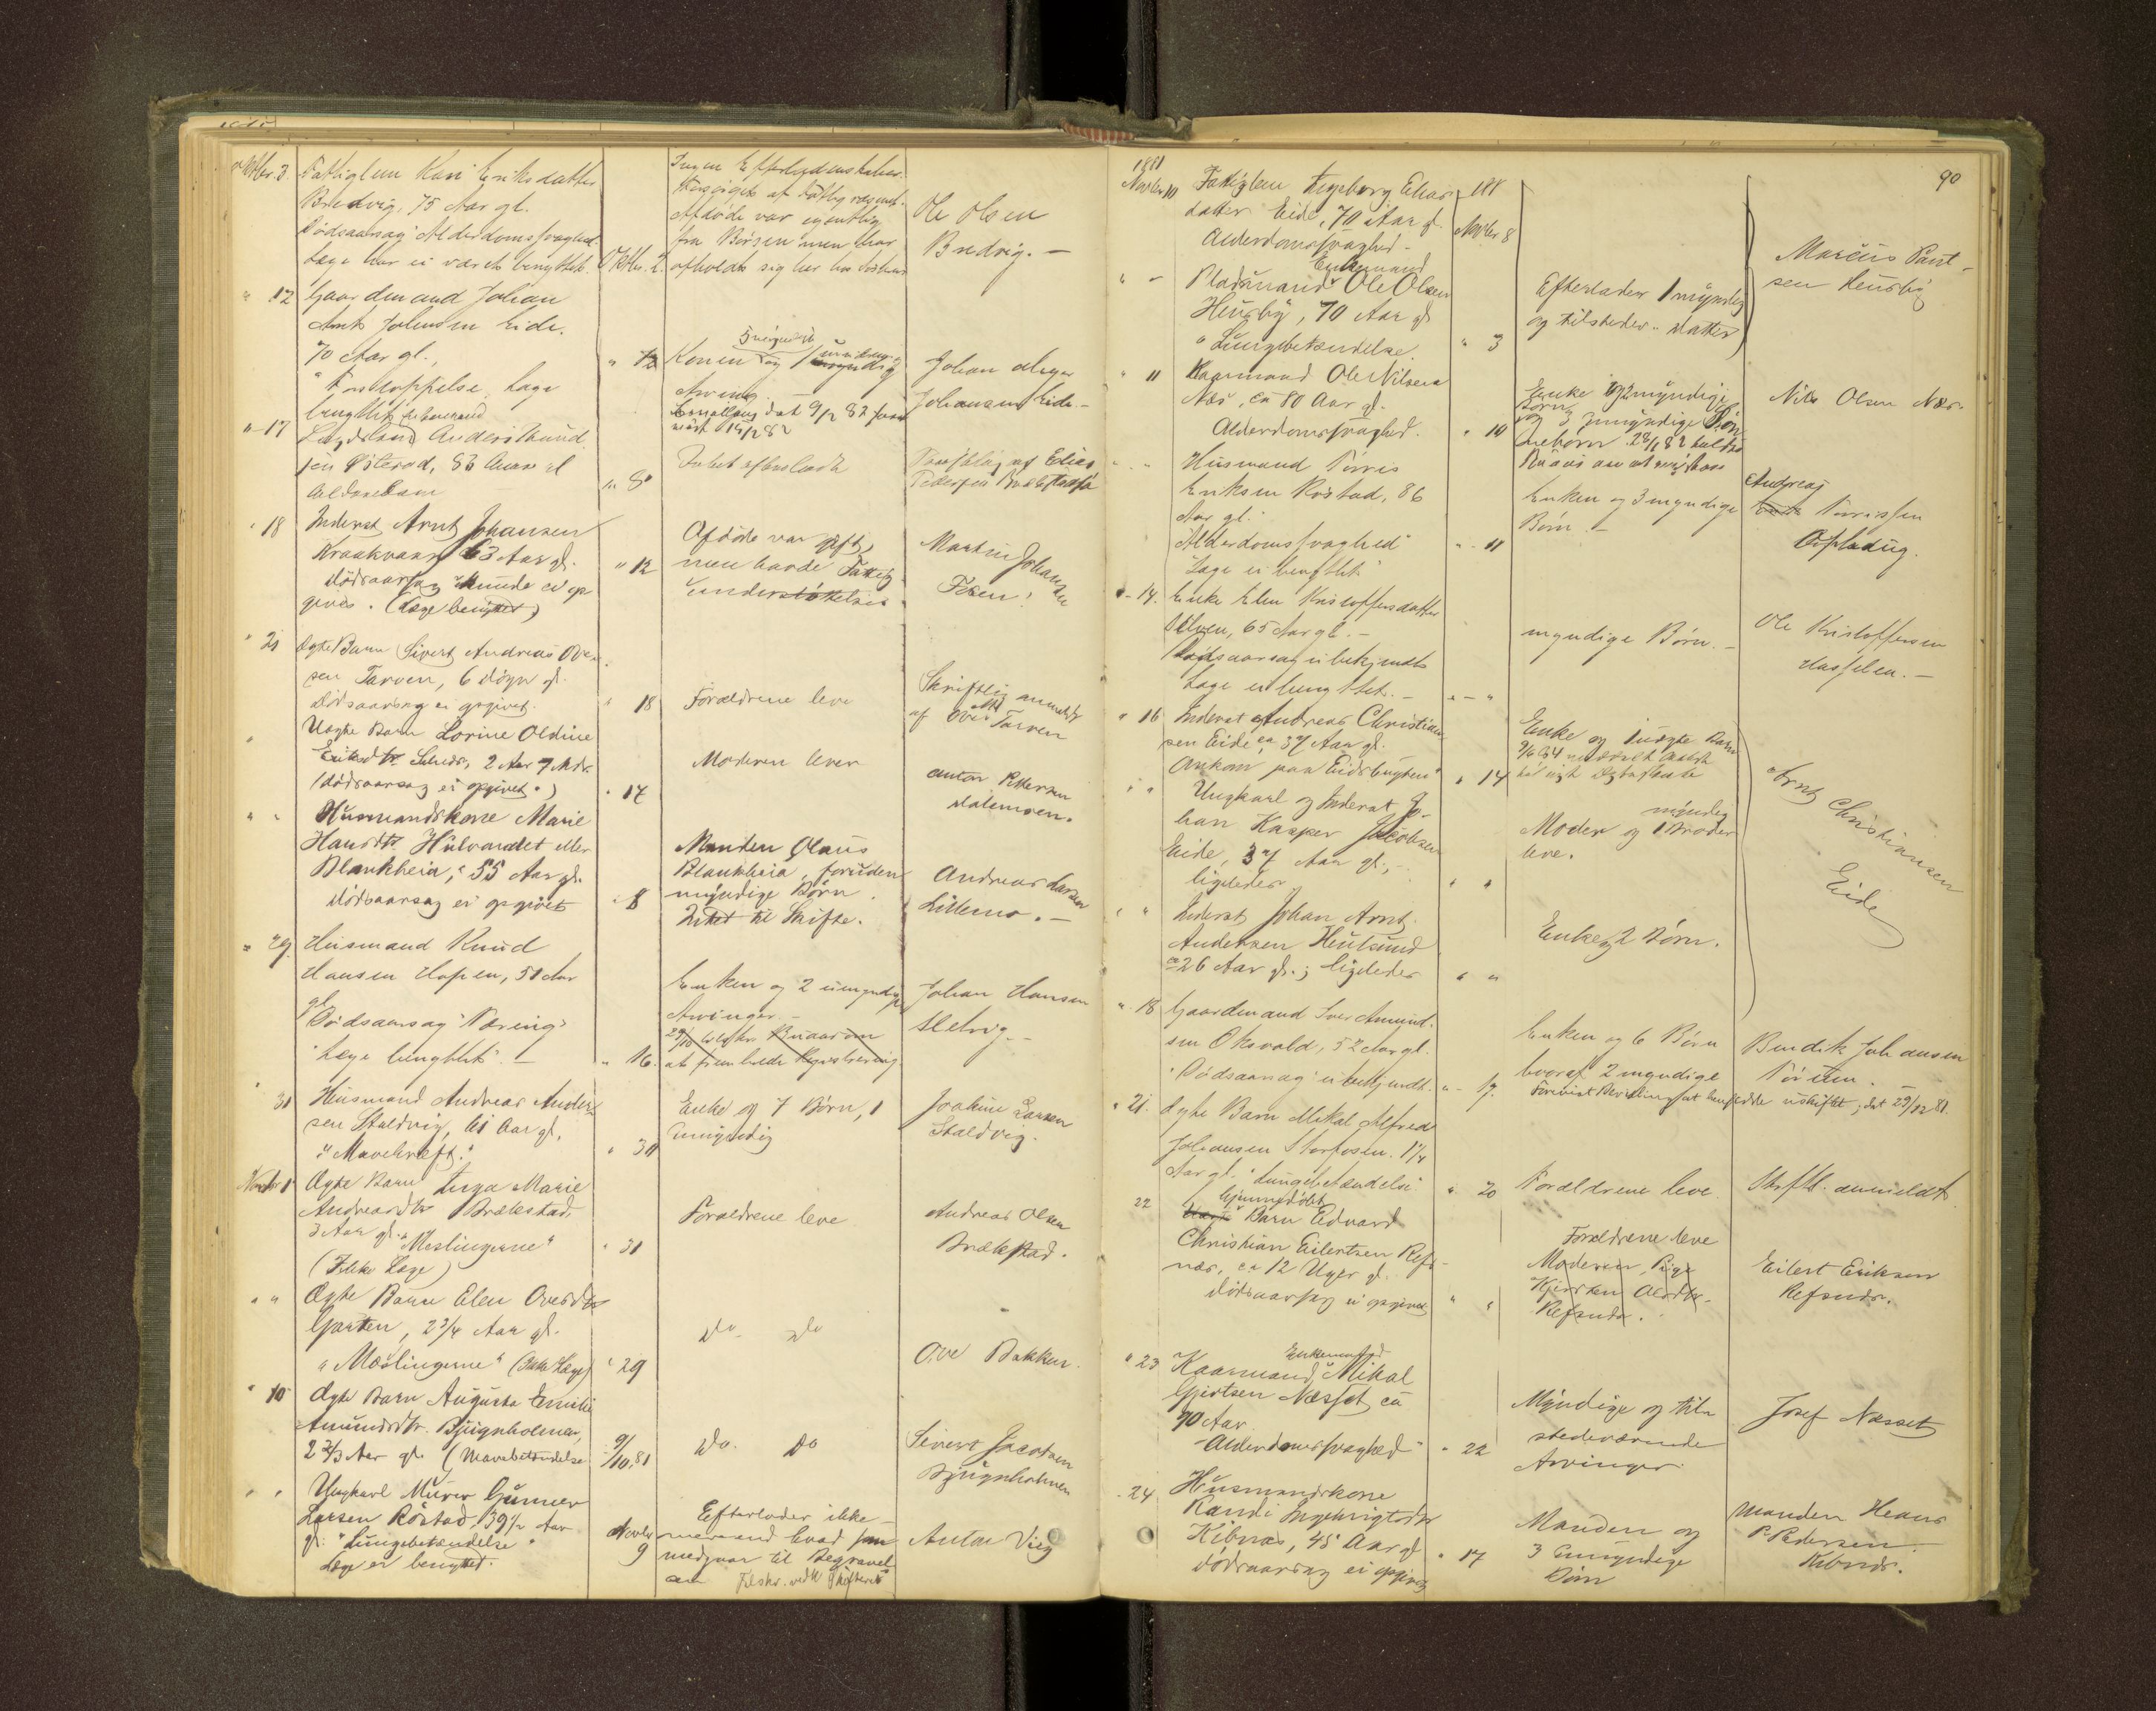 Oktbr. 3. Fattiglem Kari Eriksdatter
Bredvig, 75 Aar gl.
Dødsaarsag Alderdomssvaghed.
Læge har ei været benyttet. Oktbr. 2.
Ingen
Afdøde var egentlig
fra Børsen men har
opholdt sig her hos
Ole Olsen
Bredvig. —
" 12 Gaardmand Johan
Arnt Johnsen Eide.
70 Aar gl.
" Forstoppelse. Læge
benyttet " 12
Konen og 1 umyndig
Arving.
Johan
Johansen Eide. —
" 17
Anders
Østerad, 83 Aar gl
" 8
Intet efterladt
af Elias
Pedersen
" 18 Inderst Arnt Johansen
Kraakvaag 63 Aar gl.
Dødsaarsag kunde ei op
gives. (Læge benyttet) " 12
Afdøde var gift,
men havde Fattig
understøttelse
Martin Johansen
" 21 Ægte Barn Sivert Andreas Ove
sen Tarven, 6 Døgn gl.
Dødsaarsag ei opgivet. " 18
Forældrene leve
Skriftlig anmeldt
af Ove Tarven
" Uægte Barn Lorine Oldine
Eriksdtr. 2 Aar 7 Mdr.
(Dødsaarsag ei opgivet.) " 17
Moderen lever
Anton Pettersen
" " Husmandskone Marie
Hansdtr. Hülvandet eller
Blankheia, 55 Aar gl.
Dødsaarsag ei opgivet " 8
Manden Olaus
Blankheia, foruden
myndige Børn.
Intet til Skifte.
Andreas Larsen
Lillemo. —
" 29. Husmand Knud
Hansen Hopen, 51 Aar
gl.
Dødsaarsag Tæring
"Læge benyttet". — " 16.
Enken og 2 umyndige
Arvinger. —
at fremholde Registrering.
Johan Hansen
" 31 Husmand Andreas Ander
sen Staldvig, 61 Aar gl.
"Mavekræft." " 30
Enke og 7 Børn, 1
umyndig
Joakim Larsen
Staldvig.
Novbr 1 Ægte Barn Inga Marie
Andreasdtr Brækstad,
3 Aar gl. "Meslingerne"
(Ikke Læge) " 31
Forældrene leve
Andreas Olsen
Brækstad.
" " Ægte Barn Elen Ovesdtr
Garten, 2 3/4 Aar gl.
"Mæslingerne" (Ikke Læge) " 29
Do Do
Ove Bakken.
" 10 Ægte Barn Augusta Emilie
Amundsdtr. Bjugnholmen,
2 2/3 Aar gl. (Mavebetændelse 9/10.81
Do. Do
Sivert Jacobsen
Bjugnholmen
" " Ungkarl Murer Gunner
Larsen Röstad, 39 1/2 Aar
gl. "Lungebetændelse"
Læge er benyttet. Novbr 9
Efterlader ikke
mere end hvad som
medgaar til Begravel
sen
Anton Vig
90
1881
Novbr 10 Fattiglem Ingeborg Elias
datter Eide, 70 Aar gl.
Alderdomssvaghed — 1881
Novbr 8
" — Enkemand
Pladsmand Ole Olsen
Heusby, 70 Aar gl
"Lungebetændelse. " 3
Efterlader 1 myndig
og tilstedev. Datter
Marius Pant-
sen Heusby
" 11 Kaarmand Ole Nilsen
Næs, ca 80 Aar gl.
Alderdomssvaghed. " 10
Enke og myndige
Børn
Nils Olsen Næs.
" " Husmand Tørris
Eriksen Röstad, 86
Aar gl.
"Alderdomssvaghed"
"Læge ei benyttet" " 11
Enken og 3 myndige
Børn. —
Andreas
Tørrissen
Opladug.
" 14. Enke Elen Kristoffersdatter
65 Aar gl. —
Dødsaarsag ei bekjendt
Læge ei benyttet. — " — "
myndige Børn. —
Ole Kristoffersen
Hasselen. —
" 16 Inderst Andreas Christian
sen Eide ca 37 Aar gl.
Omkom paa Eidsbugten " 14
Enke og 1 uægte Barn
" " Ungkarl og Inderst Jo-
han Kasper Jacobsen
Eide, 37 Aar gl.,
ligeledes " "
Moder og 1 myndig Broder
leve.
Arnt Christiansen
Eide
" " Inderst Johan Arnt
Andersen
ca 26 Aar gl.; ligeledes " "
Enke og 2 Børn.
" 18 Gaardmand Iver Amund-
sen Oksvold, 52 Aar gl.
"Dødsaarsag" ei bekjendt. " 17.
Enken og 6 Børn
hvoraf 2 myndige
Bendik Johansen
" 21. Ægte Barn Mikal Alfred
Johansen Storfosen. 1 1/4
Aar gl. "Lungebetændelse" " 20
Forældrene leve
Skriftl. anmeldt
22 hjemmedøbt
Barn Edvard
Christian Eilertsen Refs-
næs, ca 12 Uger gl.
Dødsaarsag ei opgivet " "
Forældrene leve
Moderen, Pige
Refsnæs.
Eilert Eriksen
Refsnæs.
" 23 Enkemand
Kaarmand Mikal
Gjertsen Næsset ca
90 Aar
"Alderdomssvaghed" " 22
Myndige og til-
stedeværende
Arvinger.
Josef Næsset
" 24 Husmandskone
Randi Ingebrigtsdtr
Kibnæs, 45 Aar gl
Dødsaarsag ei opgivet " 17
Manden og
3 umyndige
Børn
Manden Hans
P. Pedersen
Kibnæs.